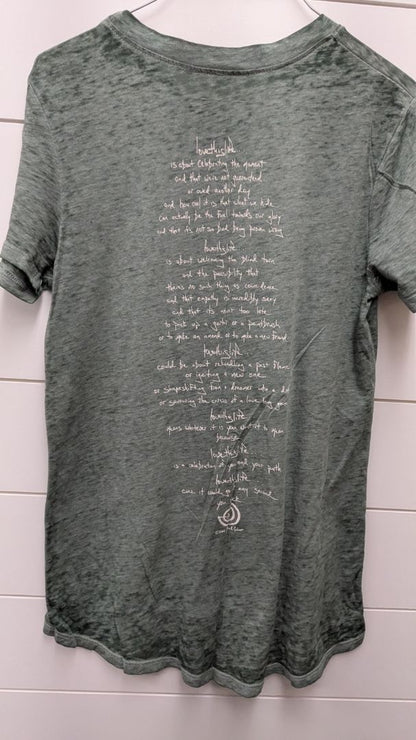 lovethislife...
is about celebrating the moment
and that we're not guaranteed
or owed another day
and how cool it is that what we hide
can actually be the fuel towards our glory
and that it's not so bad being proven wrong
lovethislife
is about welcoming the blind turn
and the possibility that
there's no such thing as coincidence
and that empathy is incredibly sexy
and that it's never too late
to pick up a guitar or a paintbrush
or to make an amend or to make a new friend
lovethislife
could be about rekindling a past flame
or igniting a new one
or shapeshifting from a dreamer into a
or surviving the crisis of a love long gone
lovethislife
means whatever it is you want it to mean
because
lovethislife...
is a celebration of you and your path
lovethislife
cause it could go any second